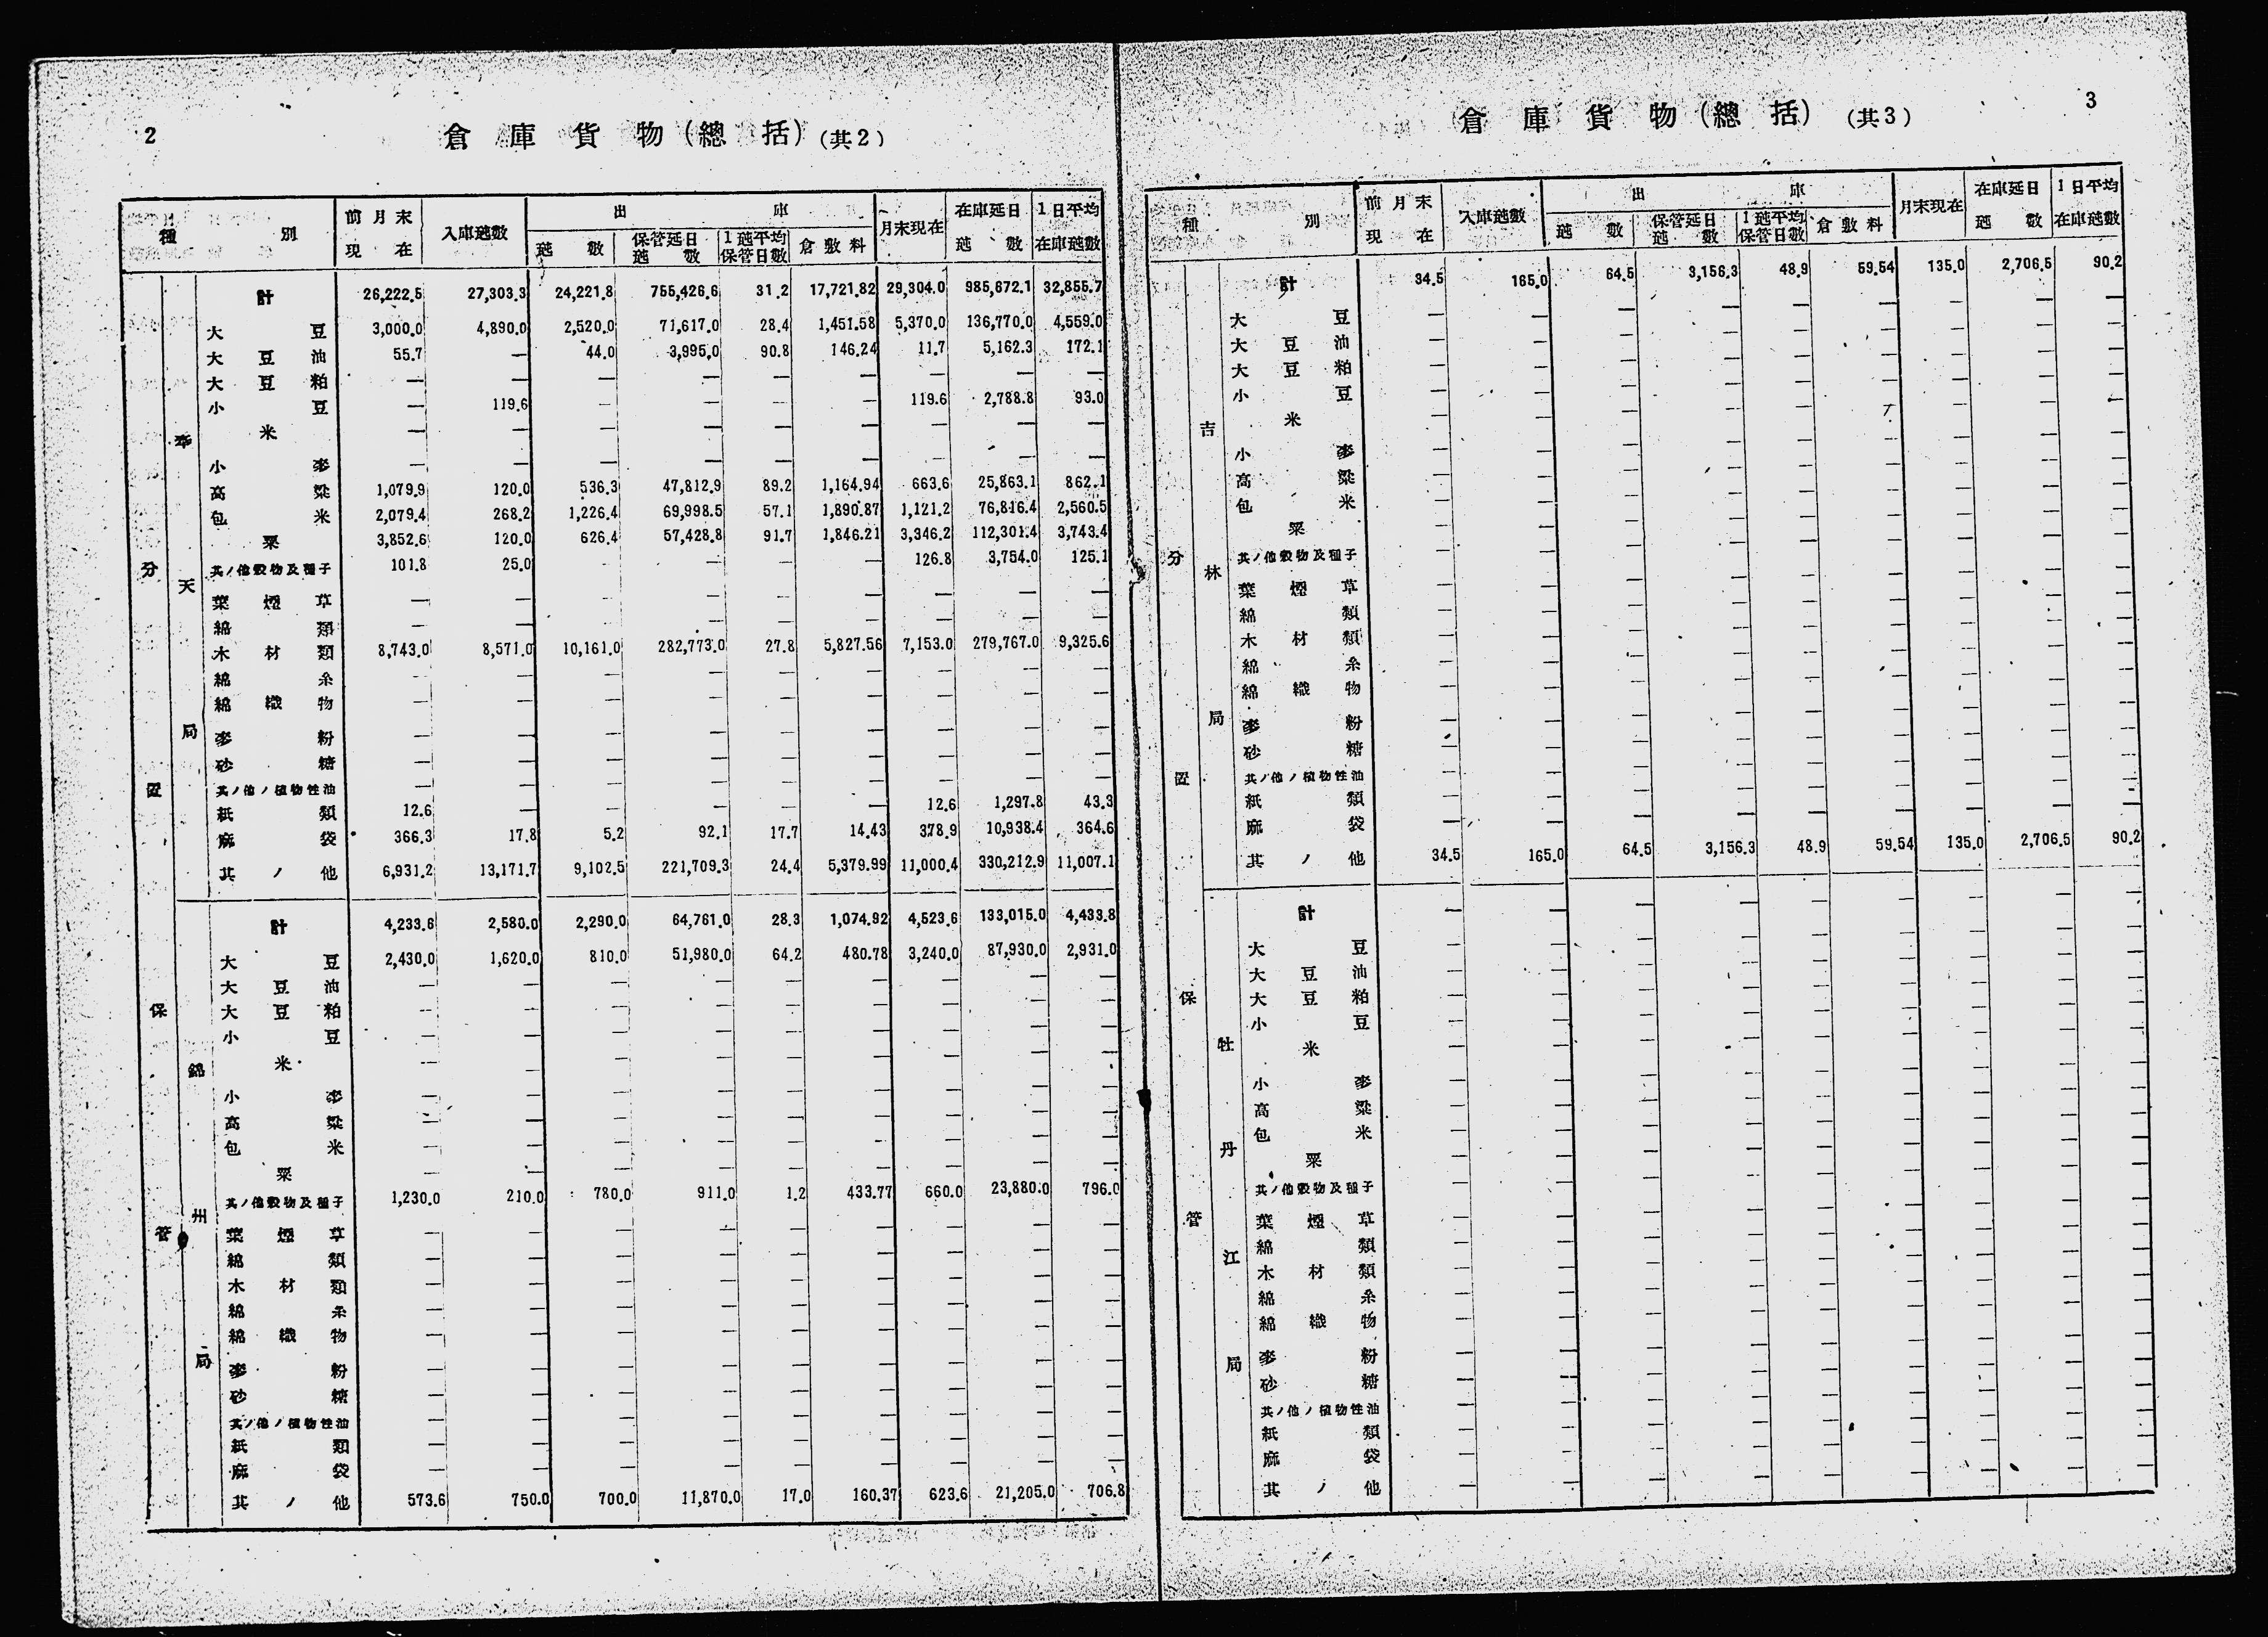 2
倉庫貨物(總括)(共2)
種別 前月末現在 入庫瓲數 出庫 月末現在 在庫延日瓲數 1日平均在庫瓲數
瓲數 保管延日瓲數 1瓲平均保管日數 倉敷料
分置保管
奉天局
計 26,222.5 27,303.3 24,221.8 755,426.6 31.2 17,721.82 29,304.0 985,672.1 32,855.7
大豆 3,000.0 4,890.0 2,520.0 71,617.0 28.4 1,451.58 5,370.0 136,770.0 4,559.0
大豆油 55.7 — 44.0 3,995.0 90.8 146.24 11.7 5,162.3 172.1
大豆粕 — — — — — — — — —
小豆 — 119.6 — — — — 119.6 2,788.8 93.0
米 — — — — — — — — —
小麥 — — — — — — — — —
高粱 1,079.9 120.0 536.3 47,812.9 89.2 1,164.94 663.6 25,863.1 862.1
包米 2,079.4 268.2 1,226.4 69,998.5 57.1 1,890.87 1,121.2 76,816.4 2,560.5
粟 3,852.6 120.0 626.4 57,428.8 91.7 1,846.21 3,346.2 112,301.4 3,743.4
其ノ他穀物及種子 101.8 25.0 — — — — 126.8 3,754.0 125.1
葉煙草 — — — — — — — — —
綿類 — — — — — — — — —
木材類 8,743.0 8,571.0 10,161.0 282,773.0 27.8 5,827.56 7,153.0 279,767.0 9,325.6
綿糸 — — — — — — — — —
綿織物 — — — — — — — — —
麥粉 — — — — — — — — —
砂糖 — — — — — — — — —
其ノ他ノ植物性油 — — — — — — — — —
紙類 12.6 — — — — — 12.6 1,297.8 43.3
麻袋 366.3 17.8 5.2 92.1 17.7 14.43 378.9 10,938.4 364.6
其ノ他 6,931.2 13,171.7 9,102.5 221,709.3 24.4 5,379.99 11,000.4 330,212.9 11,007.1
錦州局
計 4,233.6 2,580.0 2,290.0 64,761.0 28.3 1,074.92 4,523.6 133,015.0 4,433.8
大豆 2,430.0 1,620.0 810.0 51,980.0 64.2 480.78 3,240.0 87,930.0 2,931.0
大豆油 — — — — — — — — —
大豆粕 — — — — — — — — —
小豆 — — — — — — — — —
米 — — — — — — — — —
小麥 — — — — — — — — —
高粱 — — — — — — — — —
包米 — — — — — — — — —
粟 — — — — — — — — —
其ノ他穀物及種子 1,230.0 210.0 780.0 911.0 1.2 433.77 660.0 23,880.0 796.0
葉煙草 — — — — — — — — —
綿類 — — — — — — — — —
木材類 — — — — — — — — —
綿糸 — — — — — — — — —
綿織物 — — — — — — — — —
麥粉 — — — — — — — — —
砂糖 — — — — — — — — —
其ノ他ノ植物性油 — — — — — — — — —
紙類 — — — — — — — — —
麻袋 — — — — — — — — —
其ノ他 573.6 750.0 700.0 11,870.0 17.0 160.37 623.6 21,205.0 706.8
3
倉庫貨物(總括)(共3)
種別 前月末現在 入庫瓲數 出庫 月末現在 在庫延日瓲數 1日平均在庫瓲數
瓲數 保管延日瓲數 1瓲平均保管日數 倉敷料
分置保管
吉林局
計 34.5 165.0 64.5 3,156.3 48.9 59.54 135.0 2,706.5 90.2
大豆 — — — — — — — — —
大豆油 — — — — — — — — —
大豆粕 — — — — — — — — —
小豆 — — — — — — — — —
米 — — — — — — — — —
小麥 — — — — — — — — —
高粱 — — — — — — — — —
包米 — — — — — — — — —
粟 — — — — — — — — —
其ノ他穀物及種子 — — — — — — — — —
葉煙草 — — — — — — — — —
綿類 — — — — — — — — —
木材類 — — — — — — — — —
綿糸 — — — — — — — — —
綿織物 — — — — — — — — —
麥粉 — — — — — — — — —
砂糖 — — — — — — — — —
其ノ他ノ植物性油 — — — — — — — — —
紙類 — — — — — — — — —
麻袋 — — — — — — — — —
其ノ他 34.5 165.0 64.5 3,156.3 48.9 59.54 135.0 2,706.5 90.2
牡丹江局
計 — — — — — — — — —
大豆 — — — — — — — — —
大豆油 — — — — — — — — —
大豆粕 — — — — — — — — —
小豆 — — — — — — — — —
米 — — — — — — — — —
小麥 — — — — — — — — —
高粱 — — — — — — — — —
包米 — — — — — — — — —
粟 — — — — — — — — —
其ノ他穀物及種子 — — — — — — — — —
葉煙草 — — — — — — — — —
綿類 — — — — — — — — —
木材類 — — — — — — — — —
綿糸 — — — — — — — — —
綿織物 — — — — — — — — —
麥粉 — — — — — — — — —
砂糖 — — — — — — — — —
其ノ他ノ植物性油 — — — — — — — — —
紙類 — — — — — — — — —
麻袋 — — — — — — — — —
其ノ他 — — — — — — — — —